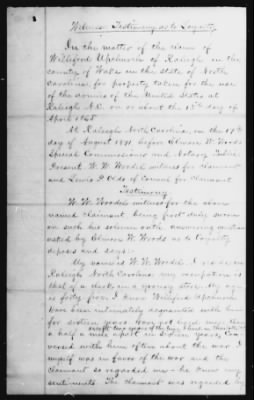 Witness Testimony as to Loyalty
In the matter of the claim of
Williford Upchurch of Raleigh in the
county of Wake in the state of North
Carolina for property taken for the use
of the armies of the United States at
Raleigh N.C. on or about the 13th day of
April 1865
At Raleigh North Carolina, on the 17th
day of August 1871 before Elmore W. Woods
Special Commissioner and Notary Public
Present W. W. Woodel witness for claimant
and Lewis P Olds of Counsel for Claimant
Testimony
W. W. Woodel witness for the above
named claimant being first duly sworn
on his solemn oath answering questions
asked by Elmore W. Woods as to Loyalty
deposes and says:
My name is W. W. Woodel I reside in
Raleigh North Carolina my occupation is
that of a clerk and grocery store. My age
is forty five. I know Williford Upchurch
have been intimately acquainted with him
for sixteen years have not lived more than
except two years of the time I lived in
a half a mile apart in sixteen years, Con
versed with him often about the war I
myself was in favor of the war and the
claimant so regarded me - he knew my
sentiments The claimant was regarded by